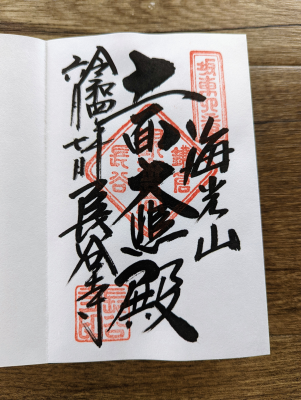 坂東四番
海光山
十一面大悲殿
鎌倉
長谷
長谷寺
令和四年
六月七日